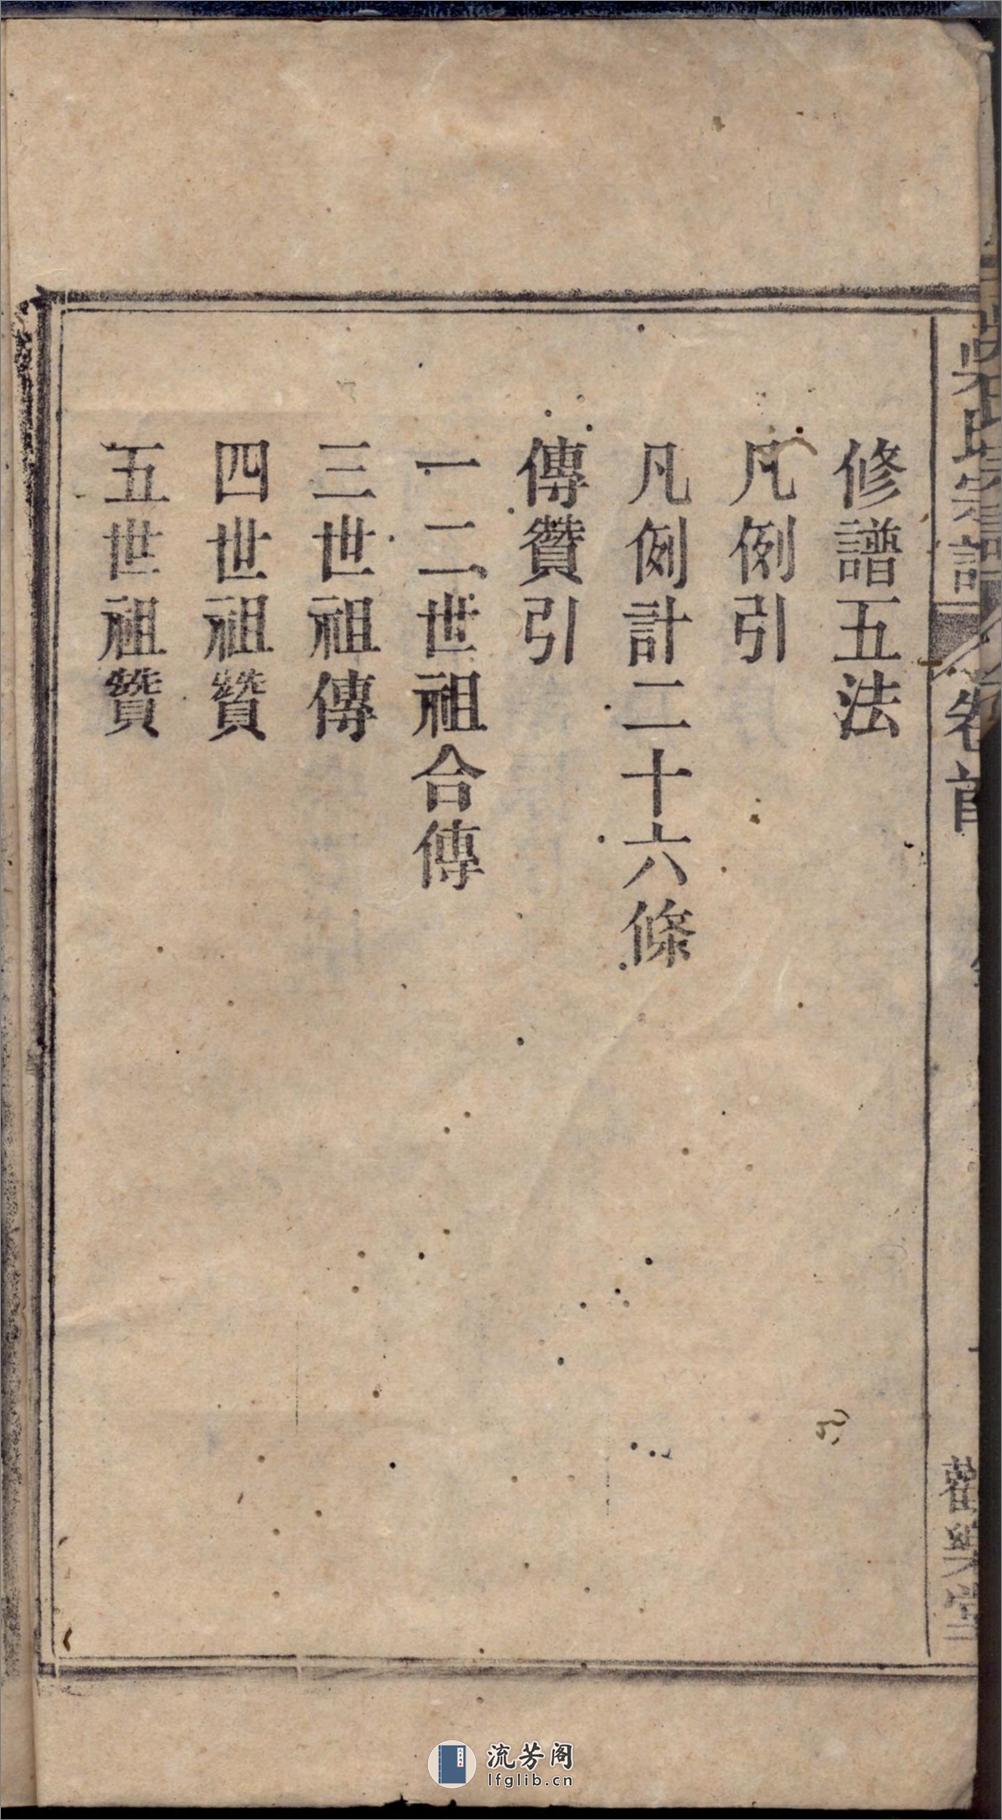 修譜五法
凡例引
凡例計二十六條
傳贊引
一二世祖合傳
三世祖傳
四世祖贊
五世祖贊
吳氏宗譜
卷首
流芳阁
lfglib.cn